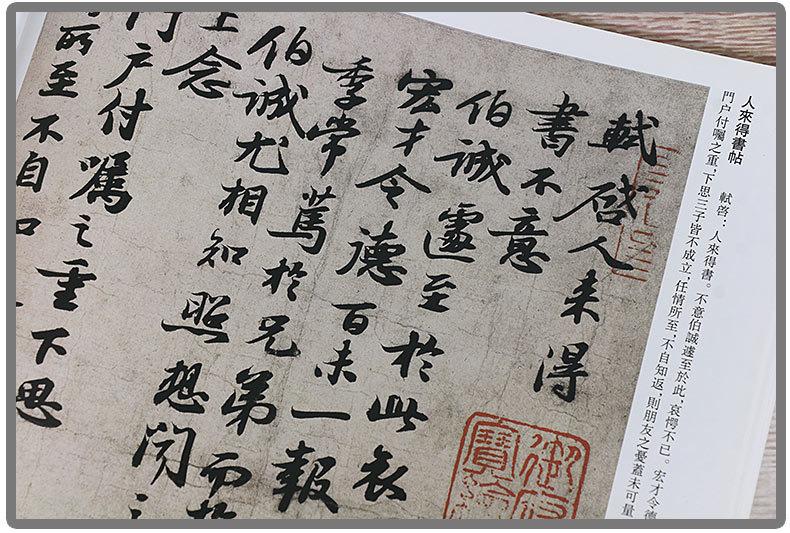 人來得書帖 軾啓：人來得書。不意伯誠遽至於此，哀愕不已。宏才令德
門户付囑之重，下思三子皆不成立，任情所至，不自知返，則朋友之憂蓋未可量
軾啓人来得
書不意
伯誠遽至於此哀
宏才令德百未一報
季常篤於兄弟而於
伯誠尤相知照想聞之
上念
門户付囑之重下思
所至不自